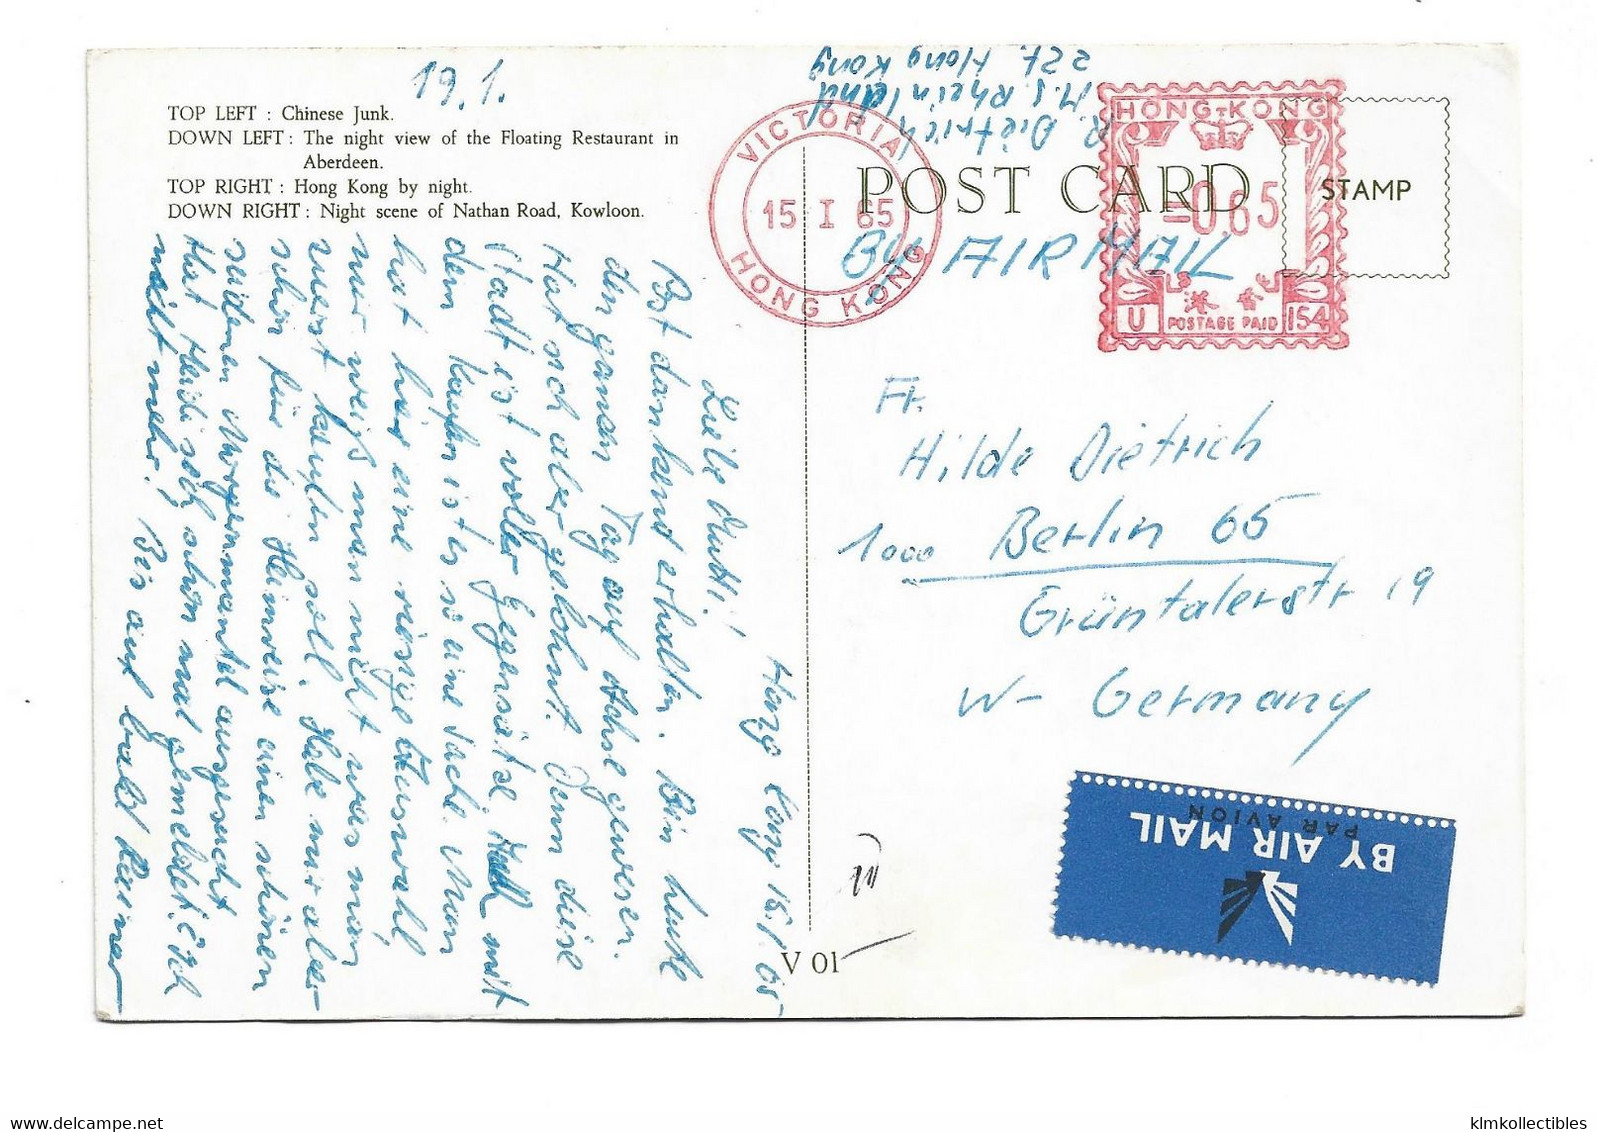 19.1.
TOP LEFT : Chinese Junk.
DOWN LEFT : The night view of the Floating Restaurant in
Aberdeen.
TOP RIGHT : Hong Kong by night.
DOWN RIGHT : Night scene of Nathan Road, Kowloon.
R. Dietrich
M.S. Rheinland
zZt. Hong Kong
VICTORIA
15 I 65
HONG KONG
POST CARD
HONG-KONG
=065
香港
U POSTAGE PAID 154
STAMP
BY AIRMAIL
Hong Kong 15.1.65
Liebe Mutti!
Post dankend erhalten. Bin heute
den ganzen Tag auf Achse gewesen.
Hat sich aber gelohnt. Denn diese
Stadt ist voller Gegensätze. mit
dem kaufen ist es so eine Sache. Man
hat hier eine riesige Auswahl
nur weiß man nicht was man
zuerst kaufen soll. Habe mir aber
schon für die Heimreise einen schönen
Morgenmantel ausgesucht
Hat Heidi sich schon mal gemeldet? Ich
nicht mehr. Bis auf bald Reiner
Fr.
Hilde Dietrich
1000 Berlin 65
Grüntalerstr 19
W- Germany
BY AIR MAIL
PAR AVION
V 01
klmkollectibles